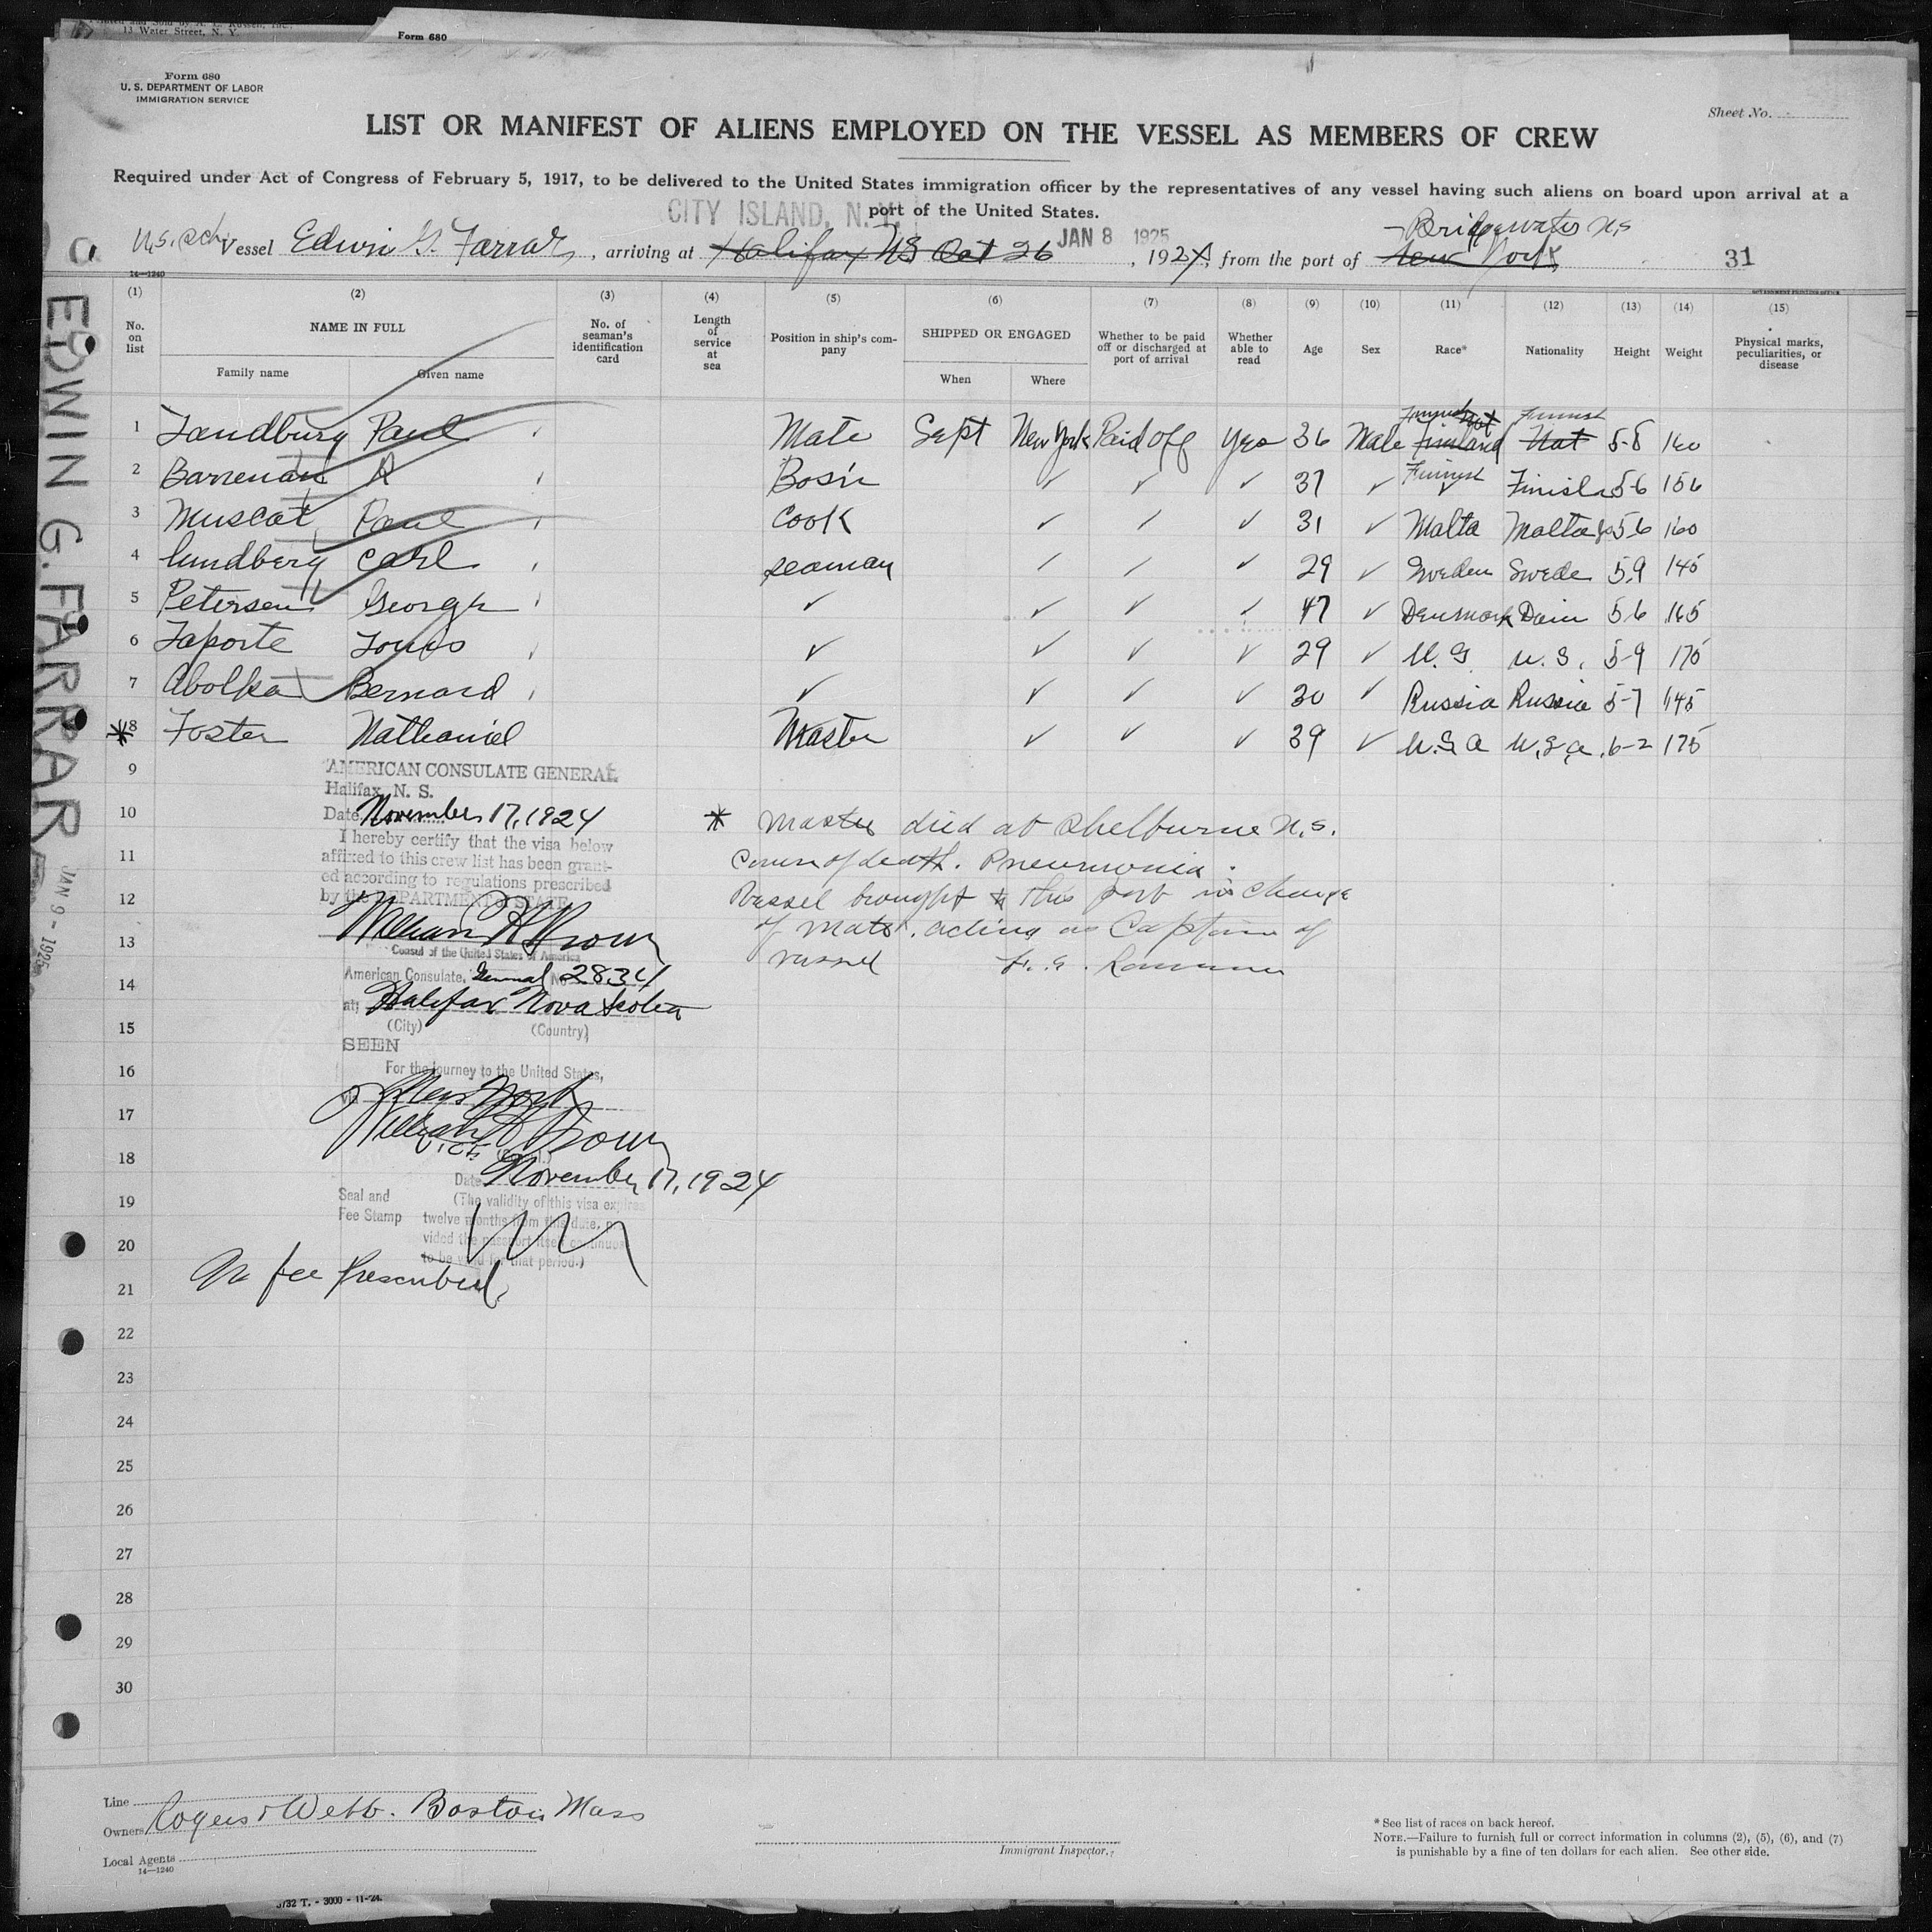 13 Water Street, N. Y.
Form 680
Form 680
U. S. DEPARTMENT OF LABOR
IMMIGRATION SERVICE
Sheet No.
LIST OR MANIFEST OF ALIENS EMPLOYED ON THE VESSEL AS MEMBERS OF CREW
Required under Act of Congress of February 5, 1917, to be delivered to the United States immigration officer by the representatives of any vessel having such aliens on board upon arrival at a
port of the United States.
CITY ISLAND, N. Y.
JAN 8 1925
Bridgewater N S
U.S. Sch. Vessel Edwin G. Farrar, arriving at Halifax NS Oct 26, 1924, from the port of New York
31
14-1240
EDWIN G. FARRAR
JAN 9 - 1925
(1) (2) (3) (4) (5) (6) (7) (8) (9) (10) (11) (12) (13) (14) (15)
No. on list NAME IN FULL No. of seaman's identification card Length of service at sea Position in ship's company SHIPPED OR ENGAGED Whether to be paid off or discharged at port of arrival Whether able to read Age Sex Race* Nationality Height Weight Physical marks, peculiarities, or disease
Family name Given name When Where
1 Sandburg Paul Mate Sept New York Paid off yes 36 Male Finnish Finland Finnish Nat 5-8 160
2 R Bos'n ✓ ✓ ✓ 37 ✓ Finnish ✓ 5-6 156
3 Muscat Paul Cook ✓ ✓ ✓ 31 ✓ Malta 5-6 160
4 Lundberg Carl seaman ✓ ✓ ✓ 29 ✓ Sweden Swede 5.9 145
5 Petersen George ✓ ✓ ✓ ✓ 47 ✓ Denmark 5.6 165
6 Laporte Louis ✓ ✓ ✓ ✓ 29 ✓ U.S U.S. 5-9 175
7 Bernard ✓ ✓ ✓ ✓ 30 ✓ Russia Russia 5-7 145
*8 Foster Nathaniel Master ✓ ✓ ✓ 39 ✓ U.S a U.S.a. 6-2 175
9
10
11
12
13
14
15
16
17
18
19
20
21
22
23
24
25
26
27
28
29
30
AMERICAN CONSULATE GENERAL
Halifax, N. S.
Date November 17, 1924
I hereby certify that the visa below
affixed to this crew list has been grant-
ed according to regulations prescribed
by the DEPARTMENT of STATE.
Consul of the United States of America
American Consulate, General No 2834
at, Halifax Nova Scotia
(City) (Country)
SEEN
For the journey to the United States,
via New York
Date November 17, 1924
Seal and
Fee Stamp
(The validity of this visa expires
twelve months from this date, pro-
vided the passport itself continues
to be valid for that period.)
No fee Prescribed.
* Master died at Shelburne N.S.
Cause of death. Pneumonia.
Vessel brought to this port in charge
of mate. acting as Captain of
vessel
Line
Owners Rogers & Webb. Boston Mass
Local Agents
14—1240
Immigrant Inspector.
* See list of races on back hereof.
NOTE.—Failure to furnish full or correct information in columns (2), (5), (6), and (7)
is punishable by a fine of ten dollars for each alien. See other side.
3732 T. - 3000 - 11-24.